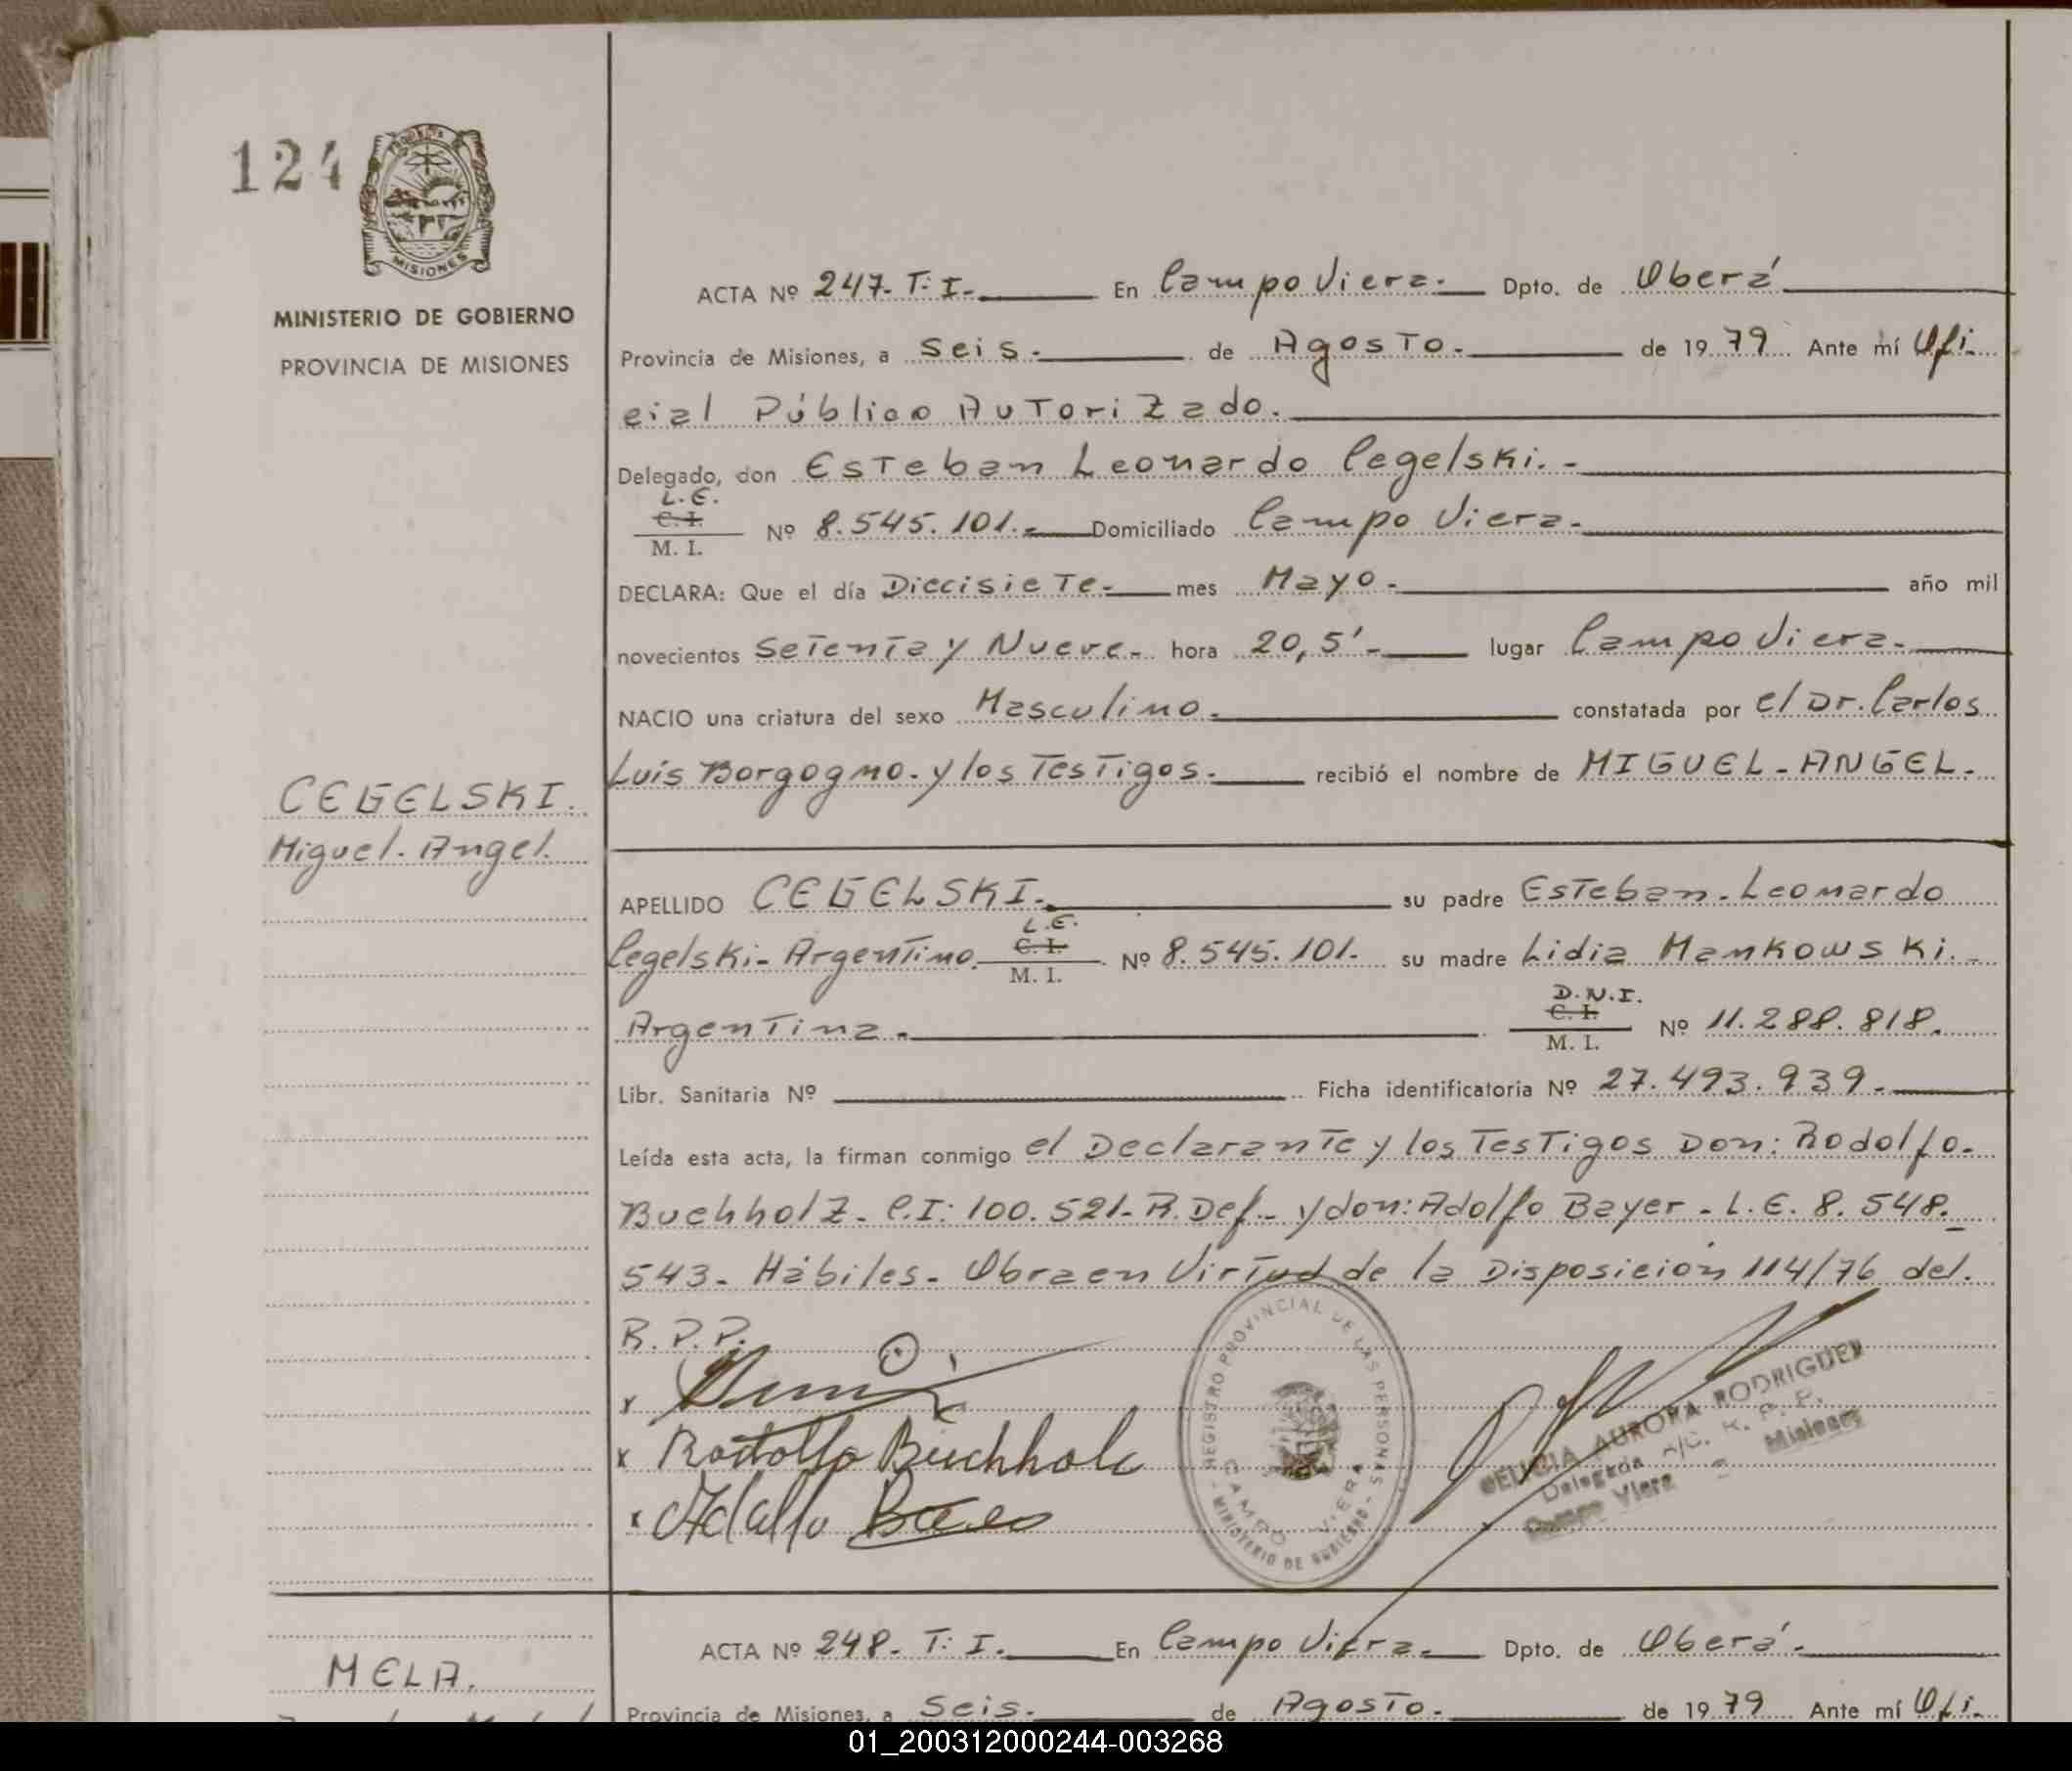 124
MISIONES
MINISTERIO DE GOBIERNO
PROVINCIA DE MISIONES
ACTA Nº 247. T: I. En Campo Viera. Dpto. de Oberá
Provincia de Misiones, a Seis. de Agosto. de 19 79 Ante mí Ofi
cial Público Autorizado.
Delegado, don Esteban Leonardo Cegelski.
L.E.
C. I.
M. I.
Nº 8.545.101. Domiciliado Campo Viera.
DECLARA: Que el día Diecisiete. mes Mayo. año mil
novecientos Setenta y Nueve. hora 20,5' lugar Campo Viera.
NACIO una criatura del sexo Masculino. constatada por el Dr. Carlos
Luis Borgogno. y los Testigos. recibió el nombre de MIGUEL - ANGEL.
CEGELSKI.
Miguel. Angel.
APELLIDO CEGELSKI. su padre Esteban. Leonardo
Cegelski- Argentino. L.E. C. I. M. I. Nº 8.545.101. su madre Lidia Mankowski.
Argentina. D.N.I. C. I. M. I. Nº 11.288.818.
Libr. Sanitaria Nº Ficha identificatoria Nº 27.493.939.
Leída esta acta, la firman conmigo el Declarante y los Testigos Don: Rodolfo.
Buchholz. C.I: 100.521- R.Def. y don: Adolfo Bayer - L.E. 8.548.
543- Hábiles- Obra en Virtud de la Disposición 114/76 del.
R.P.P.
x
x Rodolfo Buchholz
x Adolfo
REGISTRO PROVINCIAL DE LAS PERSONAS
MINISTERIO DE GOBIERNO
CAMPO VIERA
AURORA RODRIGUEZ
Delegada A/C. R. P. P.
Campo Viera Misiones
ACTA Nº 248. T: I. En Campo Viera. Dpto. de Oberá.
MELA.
Provincia de Misiones, a Seis. de Agosto. de 19 79 Ante mí Ofi
01_200312000244-003268